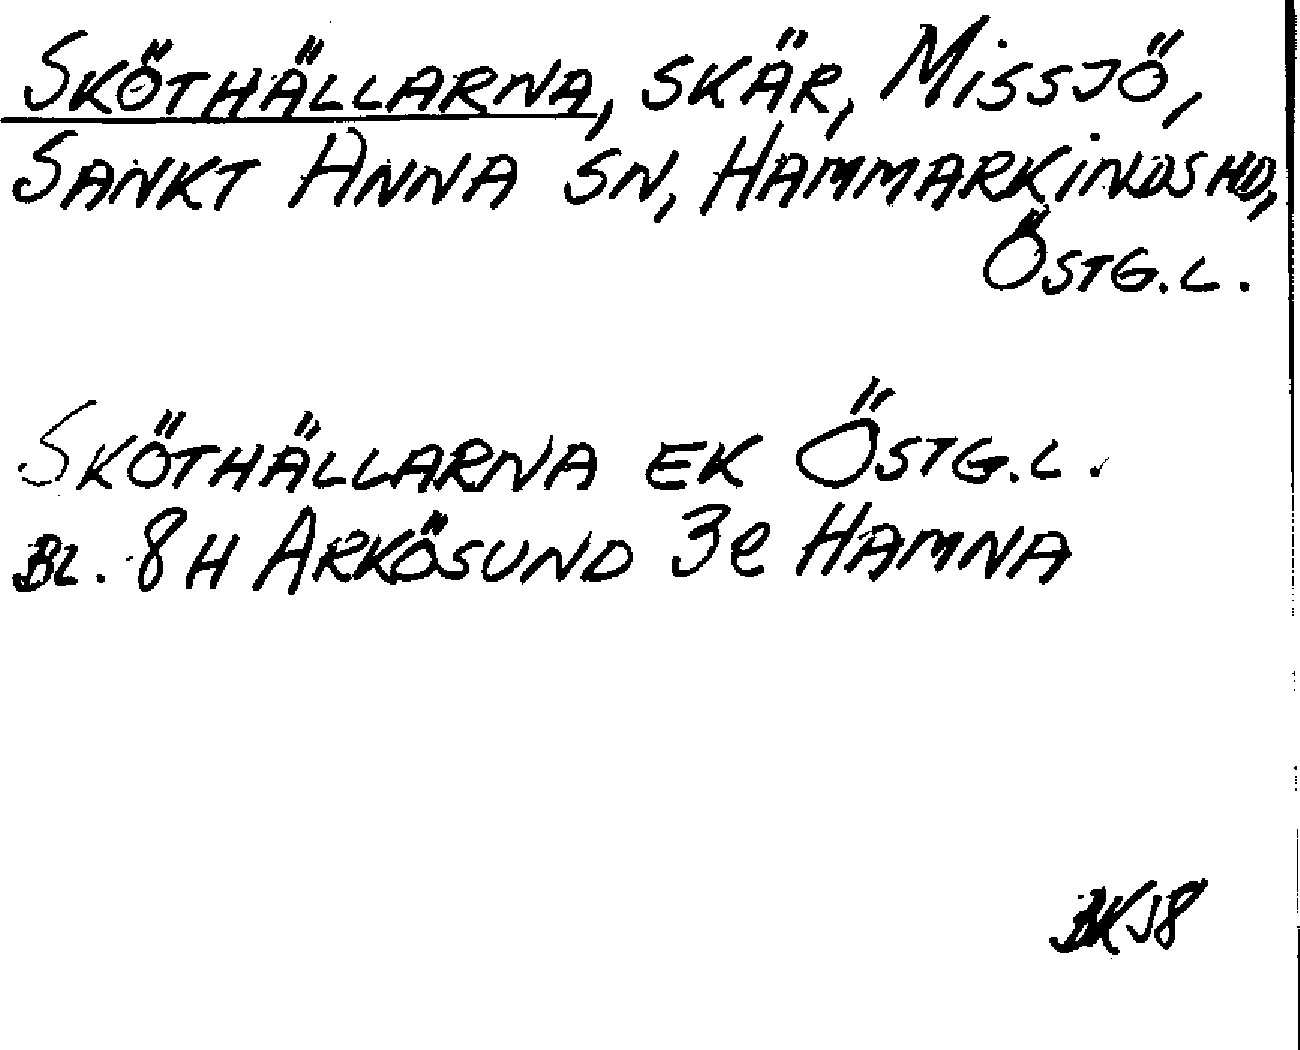 SKÖTHÄLLARNA, SKÄR, MISSJÖ,
SANKT ANNA SN, HAMMARKINDS HD,
ÖSTG.L.
SKÖTHÄLLARNA EK ÖSTG.L.
BL. 8H ARKÖSUND 3e HAMNA
BKJ8